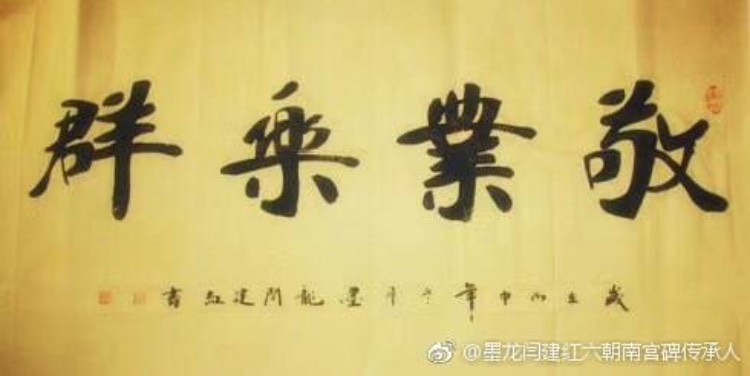 敬業樂群
歲在丙申年墨龍閆建紅書
@墨龙闫建红六朝南宫碑传承人